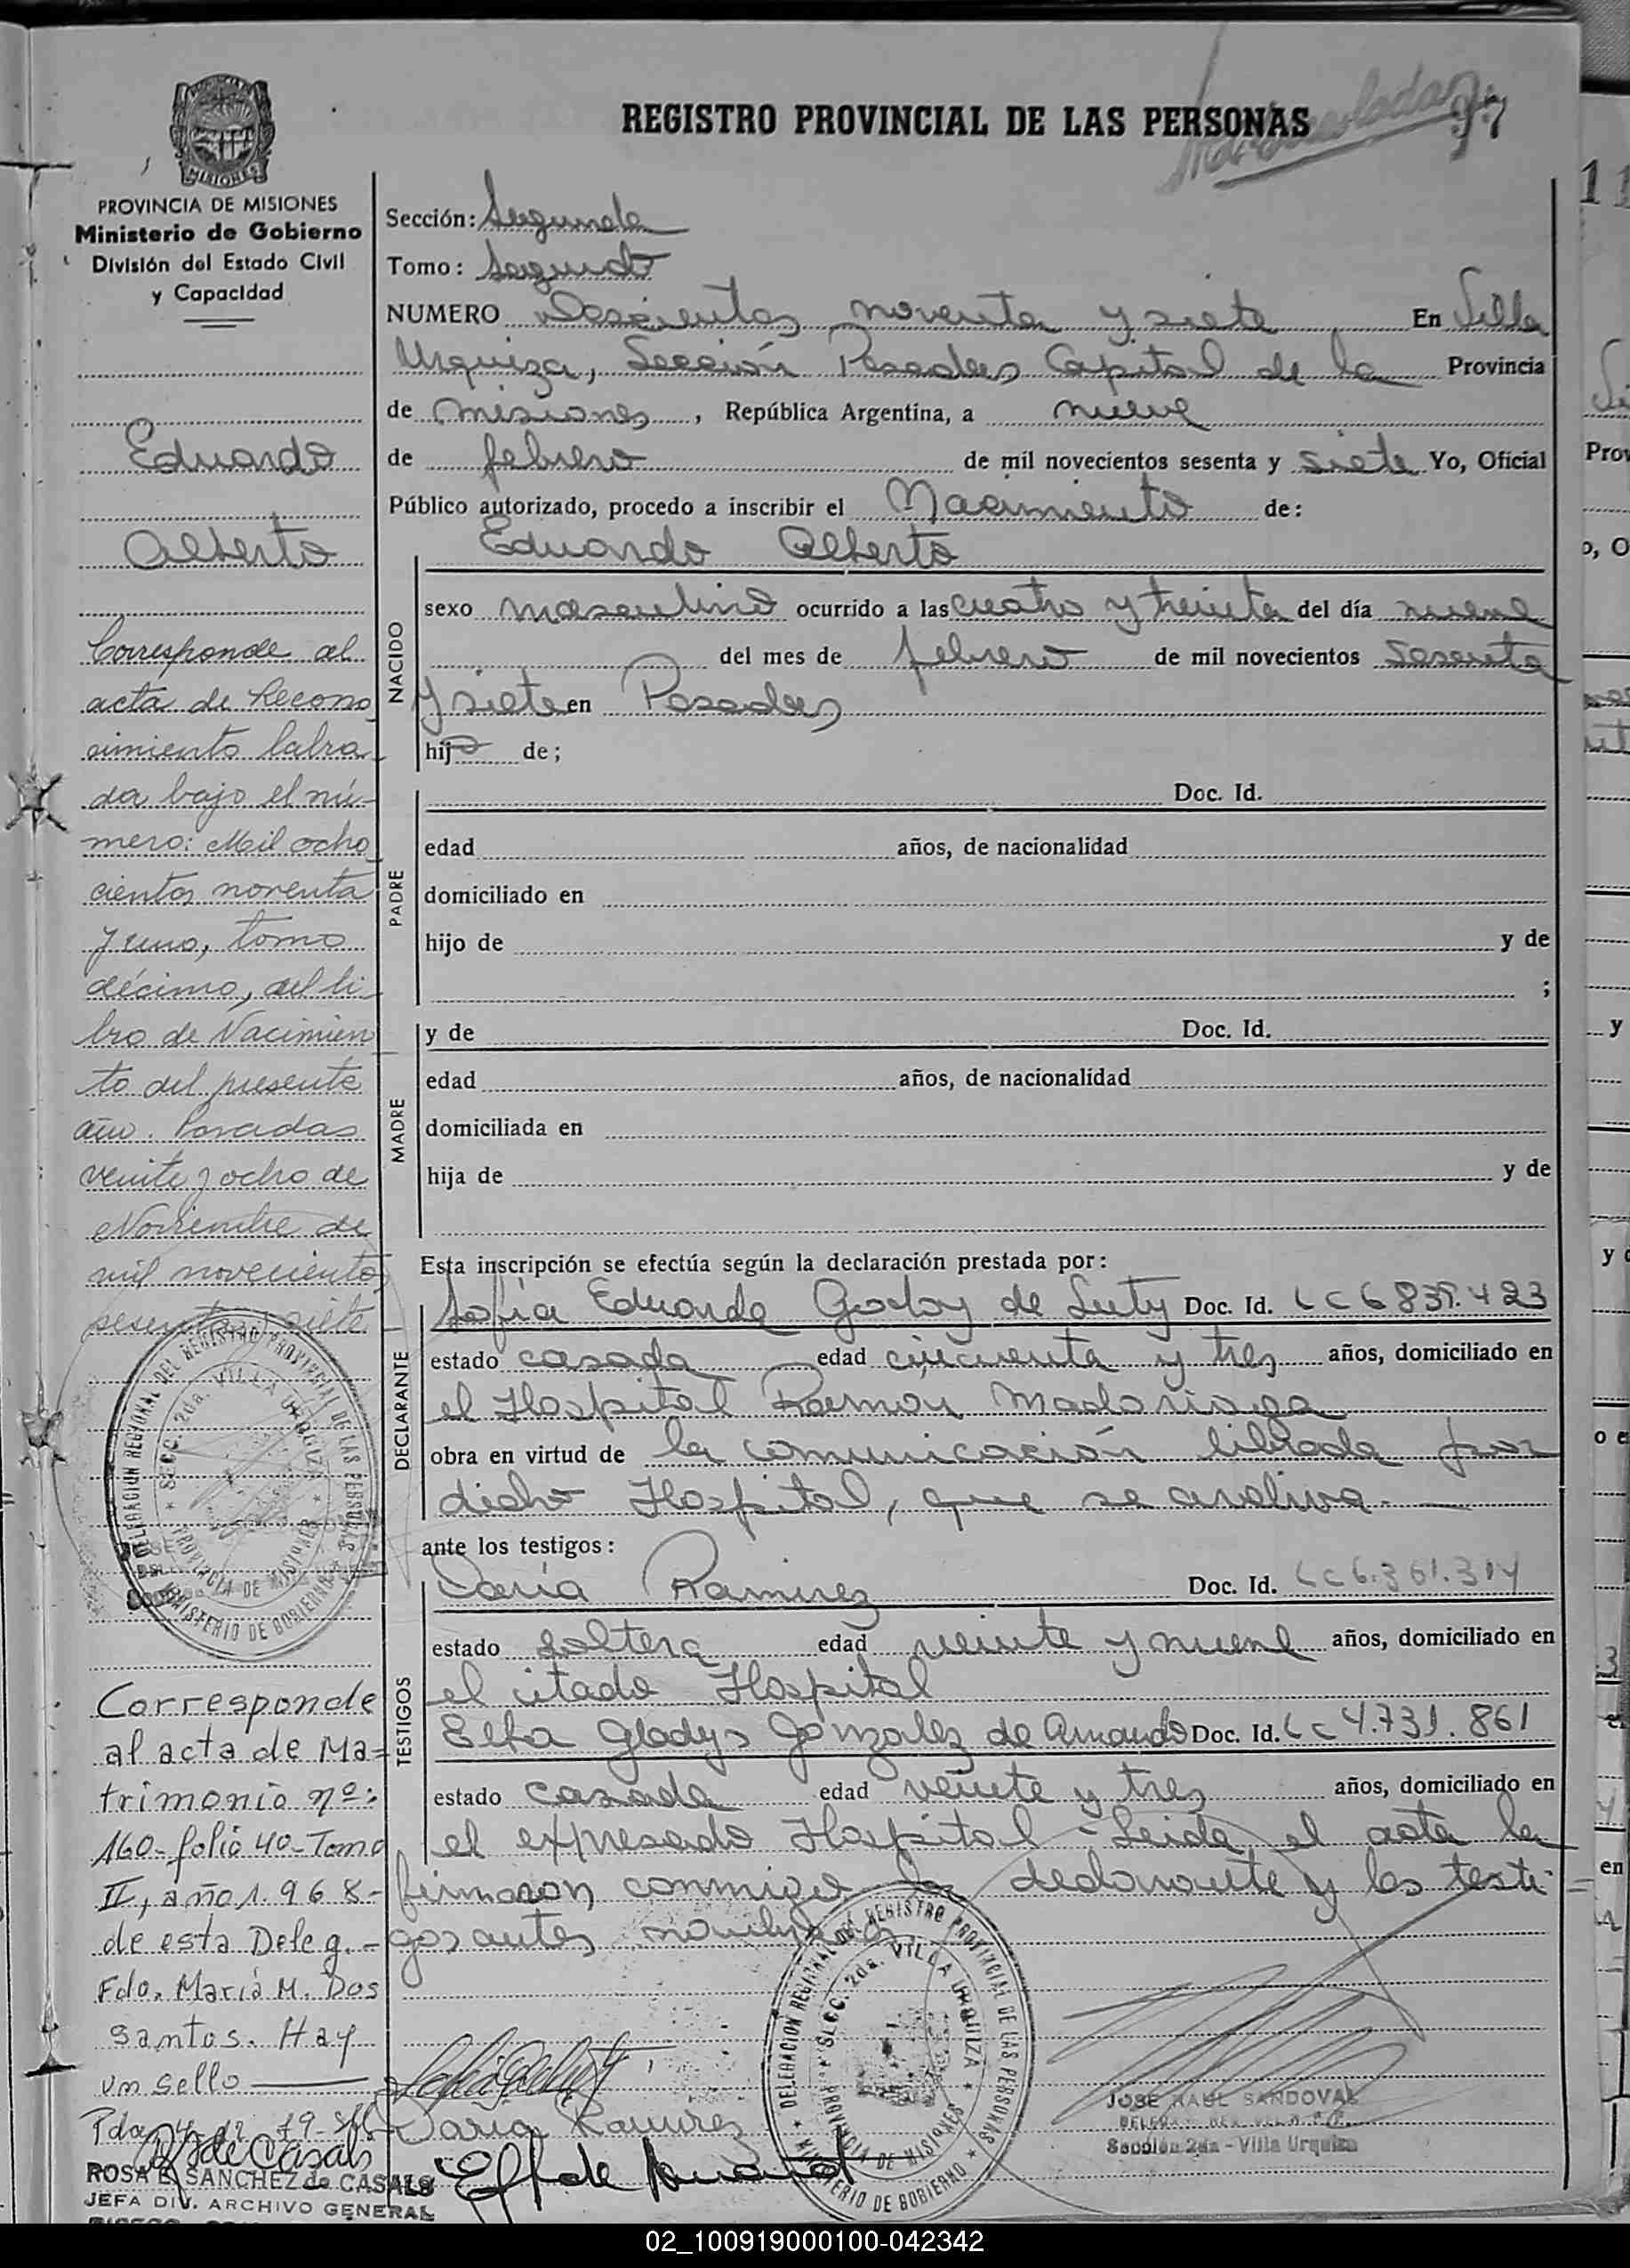 REGISTRO PROVINCIAL DE LAS PERSONAS
97
MISIONES
PROVINCIA DE MISIONES
Ministerio de Gobierno
División del Estado Civil
y Capacidad
Eduardo
Alberto
Corresponde al
acta de Recono
cimiento labra
da bajo el nú-
mero: Mil ocho
cientos noventa
y uno, tomo
décimo, del li-
bro de Nacimien
to del presente
año. Posadas
veinte y ocho de
Noviembre de
mil novecientos
sesenta y siete
DELEGACION REGIONAL DEL REGISTRO PROVINCIAL DE LAS PERSONAS
SECC. 2da. VILLA URQUIZA
PROVINCIA DE MISIONES
MINISTERIO DE GOBIERNO
Corresponde
al acta de Ma=
trimonio nº:
160-folio 40-Tomo
II, año 1.968-
de esta Deleg.-
Fdo. María M. Dos
Santos. Hay
un sello
ROSA E. SANCHEZ de CASALS
JEFA DIV. ARCHIVO GENERAL
Sección: Segunda
Tomo: Segundo
NUMERO Doscientos noventa y siete En Villa
Urquiza, Sección Posadas Capital de la Provincia
de Misiones, República Argentina, a nueve
de febrero de mil novecientos sesenta y siete Yo, Oficial
Público autorizado, procedo a inscribir el Nacimiento de:
Eduardo Alberto
NACIDO
sexo masculino ocurrido a las cuatro y treinta del día nueve
del mes de febrero de mil novecientos sesenta
y siete en Posadas
hijo de;
PADRE
Doc. Id.
edad años, de nacionalidad
domiciliado en
hijo de y de
;
MADRE
y de Doc. Id.
edad años, de nacionalidad
domiciliada en
hija de y de
Esta inscripción se efectúa según la declaración prestada por:
DECLARANTE
Sofía Eduarda Godoy de Luty Doc. Id. LC 6839.423
estado casada edad cincuenta y tres años, domiciliado en
el Hospital Ramón Madariaga
obra en virtud de la comunicación librada por
dicho Hospital, que se archiva.
ante los testigos:
TESTIGOS
Daría Ramirez Doc. Id. LC 6.361.314
estado soltera edad veinte y nueve años, domiciliado en
el citado Hospital
Elba Gladys Gonzalez de Amando Doc. Id. LC 4.731.861
estado casada edad veinte y tres años, domiciliado en
el expresado Hospital - Leida el acta la
firmaron conmigo la declarante y los testi-
gos antes nombrados
Daría Ramirez
DELEGACION REGIONAL DEL REGISTRO PROVINCIAL DE LAS PERSONAS
SECC. 2da. VILLA URQUIZA
PROVINCIA DE MISIONES
MINISTERIO DE GOBIERNO
JOSE RAUL SANDOVAL
Sección 2da - Villa Urquiza
02_100919000100-042342